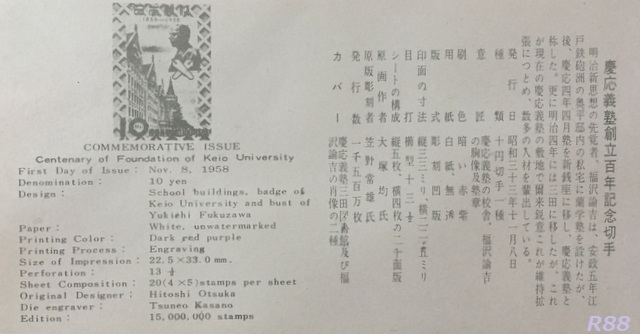 COMMEMORATIVE ISSUE
Centenary of Foundation of Keio University
First Day of Issue: Nov. 8, 1958
Denomination: 10 yen
Design: School buildings, badge of
Keio University and bust of
Yukichi Fukuzawa
Paper: White, unwatermarked
Printing Color: Dark red purple
Printing Process: Engraving
Size of Impression: 22.5×33.0 mm.
Perforation: 13 ½
Sheet Composition: 20(4×5)stamps per sheet
Original Designer: Hitoshi Otsuka
Die engraver: Tsuneo Kasano
Edition: 15,000,000 stamps
慶応義塾創立百年記念切手
明治新思想の先覚者、福沢諭吉は、安政五年江
戸鉄砲洲の奥平邸内の私宅に蘭学塾を設けたが、
後、慶応四年四月塾を新銭座に移し、慶応義塾と
称した。更に明治四年には三田に移したが、これ
が現在の慶応義塾の敷地で爾来鋭意これが維持拡
張につとめ、数多の人材を輩出している。
発行日 昭和三十三年十一月八日
種類 十円切手一種
意匠 慶応義塾の校舎、福沢諭吉
の胸像及び塾章
刷色 暗い赤紫
用紙 白紙無透
版式 彫刻凹版
印面の寸法 縦三三ミリ 横二二・五ミリ
目打 櫛型十三・
シートの構成 縦五枚、横四枚の二十面版
原画作者 大塚均氏
原版彫刻者 笠野常雄氏
発行数 一千五百万枚
カバー 慶応義塾三田図書館及び福
沢諭吉の肖像の二種
10
R88